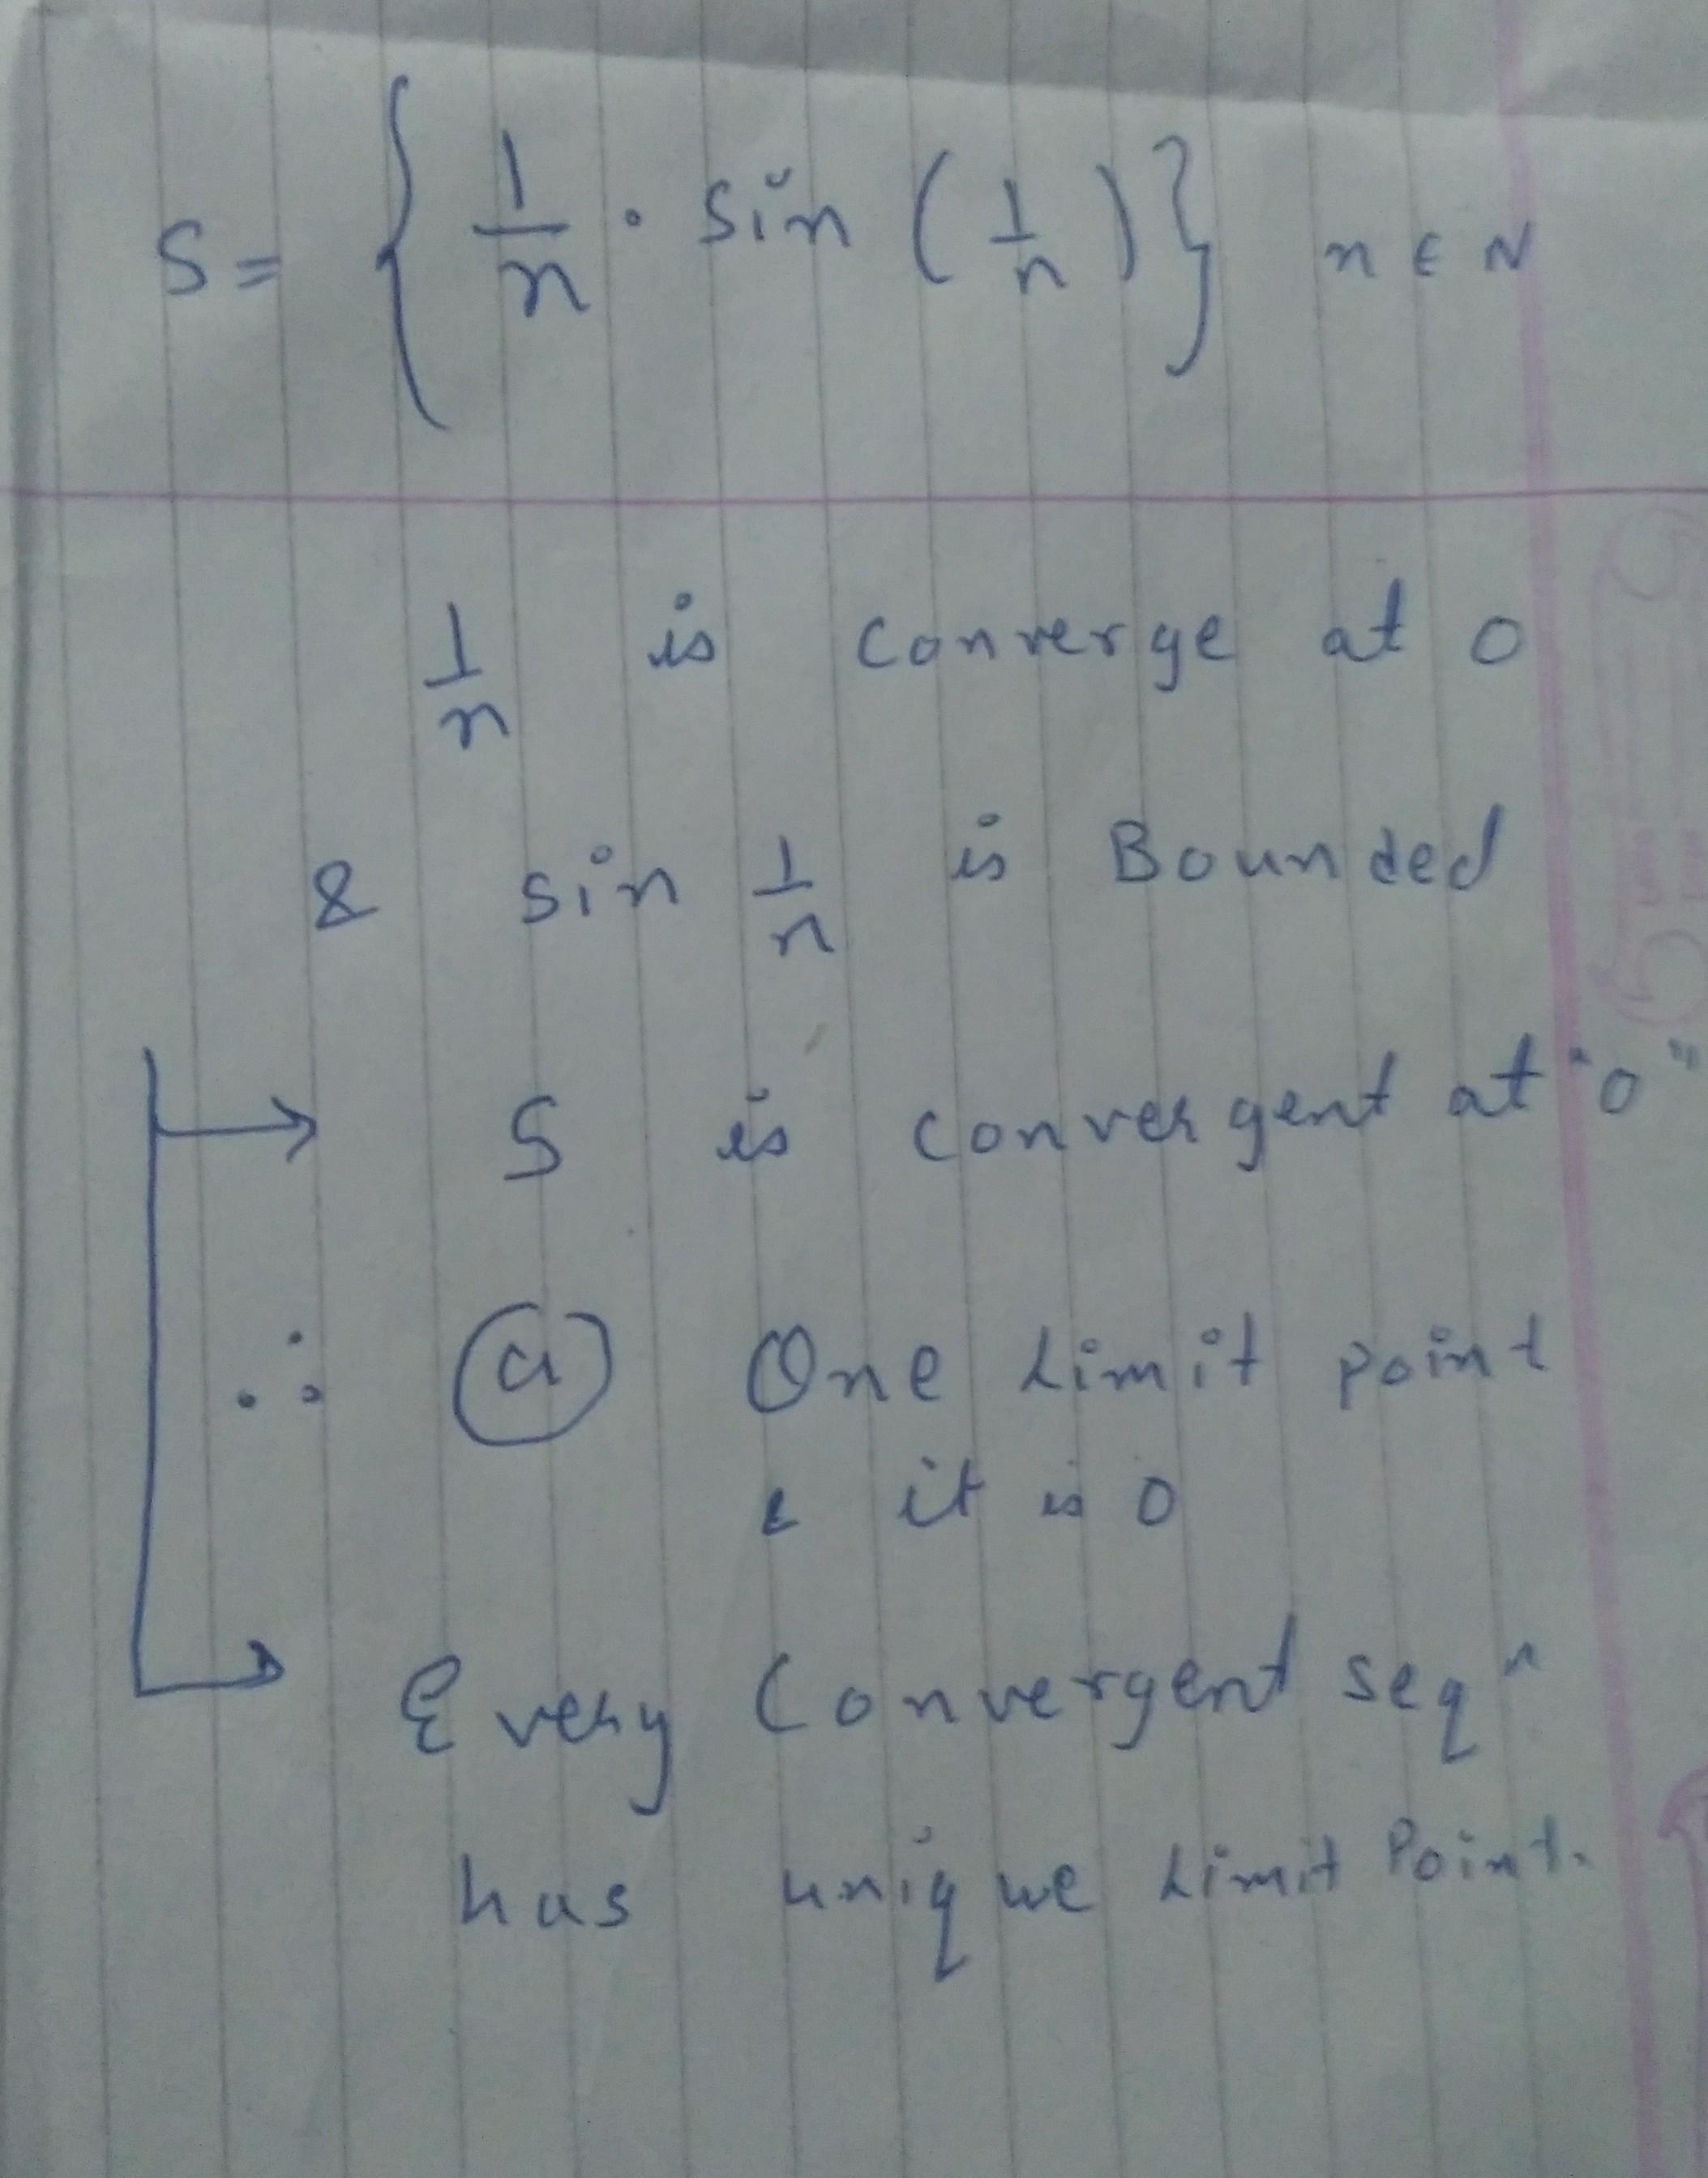 S = { 1/n · sin (1/n) } n ∈ N
1/n is converge at 0
& sin 1/n is Bounded
→ S is convergent at "0"
∴ (a) One Limit point
& it is 0
→ Every Convergent seqⁿ
has unique Limit Point.